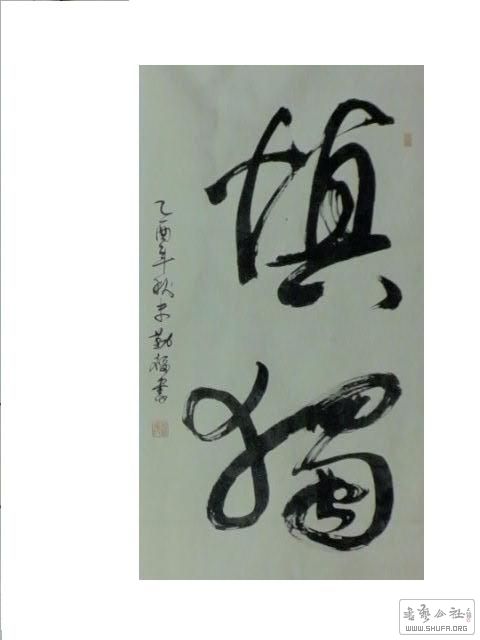 慎獨
乙酉年秋勤書
书艺公社
WWW.SHUFA.ORG